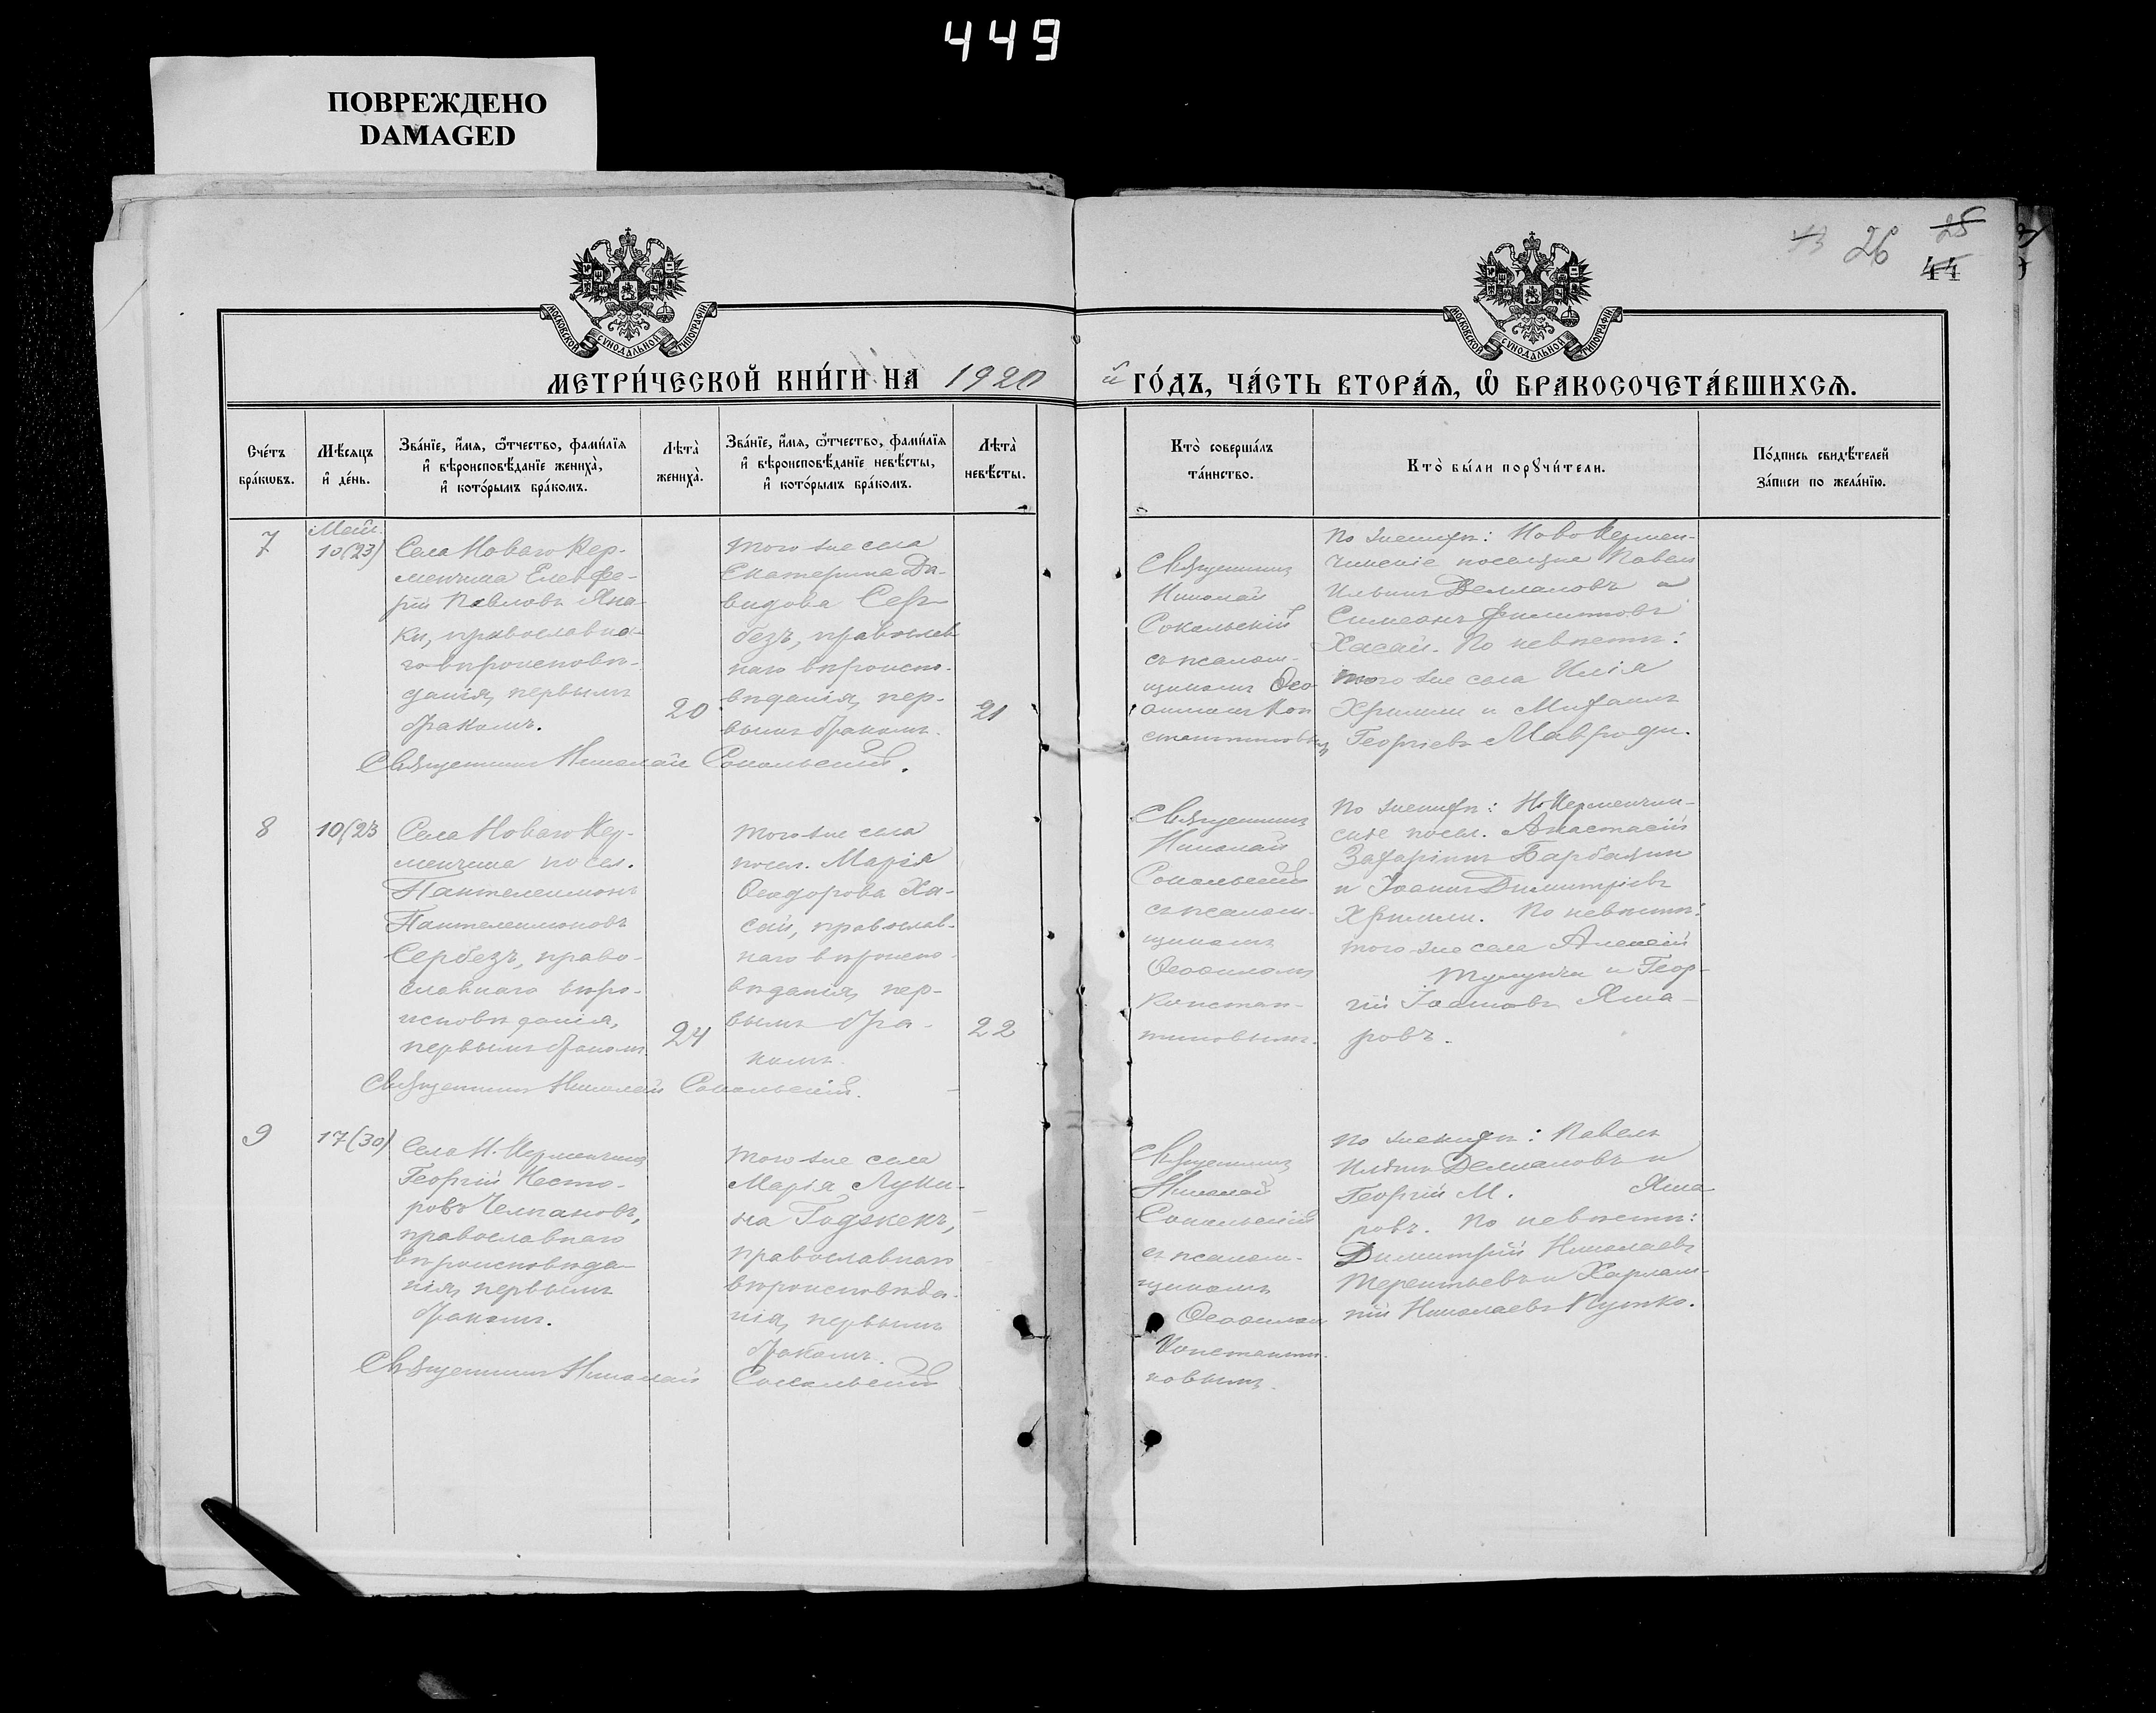 449
ПОВРЕЖДЕНО
DAMAGED
43 26 25
44
МОСКОВСКОЙ СѴНОДАЛЬНОЙ ТИПОГРАФІИ
МОСКОВСКОЙ СѴНОДАЛЬНОЙ ТИПОГРАФІИ
МЕТРИ́ЧЕСКОЙ КНИ́ГИ НА 1920 й ГО́ДЪ, ЧА́СТЬ ВТОРА́Ѧ, Ѽ БРАКОСОЧЕТА́ВШИХСѦ.
Сче́тъ
бра́кѡвъ.
Мѣ́сяцъ
и҆ де́нь.
Зва́нїе, и҆́мѧ, ѻ҆́тчество, фами́лїѧ
и҆ вѣроисповѣ́данїе жениха̀,
и҆ кото́рымъ бра́комъ.
Лѣта̀
жениха̀.
Зва́нїе, и҆́мѧ, ѻ҆́тчество, фами́лїѧ
и҆ вѣроисповѣ́данїе невѣ́сты,
и҆ кото́рымъ бра́комъ.
Лѣта̀
невѣ́сты.
Кто̀ соверша́лъ
та́инство.
Кто̀ бы́ли порꙋчи́тели.
По́дпись свидѣ́телей
за́писи по жела́нїю.
7
Май.
10(23)
Села Новаго Кер-
менчика Елевфе-
рій Павловъ Яна-
ки, православна-
го вѣроисповѣ-
данія, первымъ
бракомъ.
20
того же села
Екатерина Да-
видова Сер-
безъ, православ
наго вѣроиспо-
вѣданія, пер-
вымъ бракомъ.
21
Священникъ
Николай
Сокальскій
съ псалом-
щикомъ Ѳео-
Кон
стантиновымъ
По женихѣ: Новокермен-
чикскіе поселяне Павелъ
Ильинъ Делиаловъ и
Симеонъ Филипповъ
Хасай. По невѣстѣ:
того же села Илія
Хримли и Михаилъ
Георгіевъ Мавроди.
Священникъ Николай Сокальскій.
8
10(23
Села Новаго Кер-
менчика посел.
Пантелеимонъ
Пантелеимоновъ
Сербезъ, право-
славнаго вѣро-
исповѣданія,
первымъ бракомъ.
24
того же села
посел. Марія
Ѳеодорова Ха-
сай, православ-
наго вѣроиспо-
вѣданія, пер-
вымъ бра-
комъ.
22
Священникъ
Николай
Сокальскій
съ псалом-
щикомъ
Констан-
тиновымъ.
По женихѣ: Н-Керменчик-
скіе посел. Анастасій
Захаріинъ Барбашин
и Іоаннъ Димитріевъ
Хримли. По невѣстѣ:
того же села Алексій
и Геор-
гій Іоанновъ Яма-
ровъ.
Священникъ Николай Сокальскій.
9
17(30)
Села Н. Керменчика
Георгій Несто-
ровъ Челпановъ,
православнаго
вѣроисповѣда-
нія, первымъ
бракомъ.
того же села
Марія Луки-
на Годжекъ,
православнаго
вѣроисповѣда-
нія, первымъ
бракомъ.
Священникъ
Николай
Сокальскій
съ псалом-
щикомъ
Константи-
новымъ.
По женихѣ: Павелъ
Ильинъ Делиаловъ и
Георгій М. Яма
ровъ. По невѣстѣ:
Димитрій Николаевъ
Терентьевъ и Харлам-
пій Николаевъ Кушко.
Священникъ Николай Сокальскій